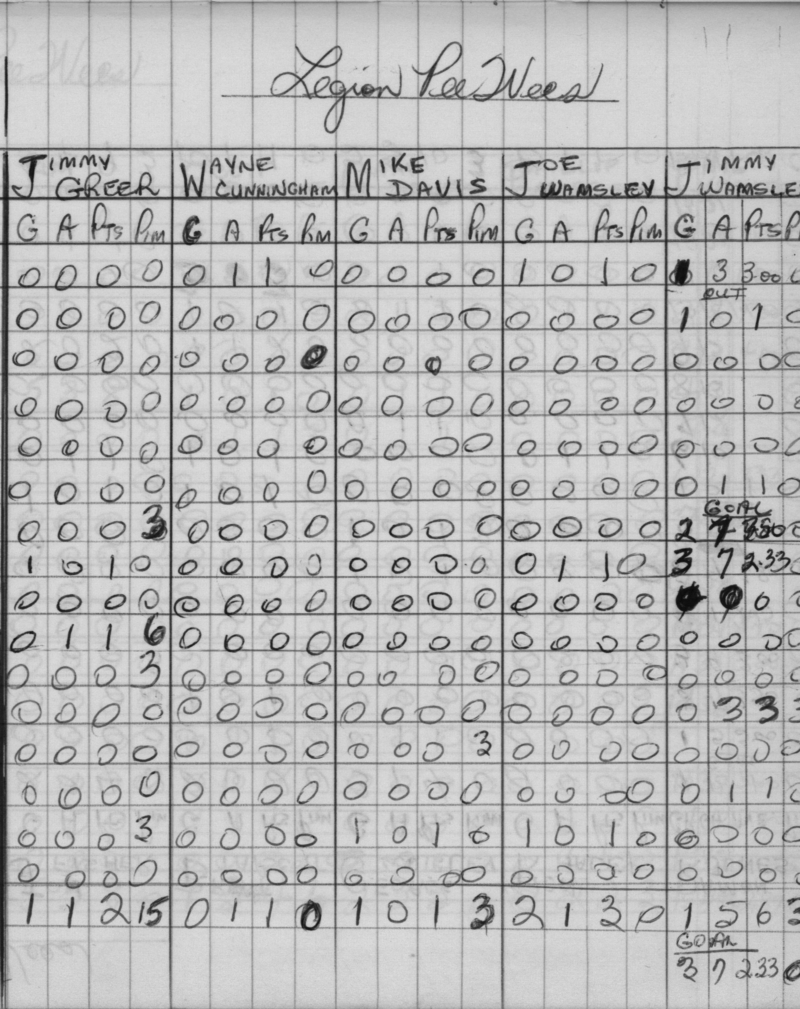 Legion Pee Wees
JIMMY GREER WAYNE CUNNINGHAM MIKE DAVIS JOE WAMSLEY JIMMY WAMSLE
G A Pts Pim G A Pts Pim G A Pts Pim G A Pts Pim G A Pts P
0 0 0 0 0 1 1 0 0 0 0 0 1 0 1 0 3 3.00
OUT
0 0 0 0 0 0 0 0 0 0 0 0 0 0 0 0 1 0 1 0
0 0 0 0 0 0 0 0 0 0 0 0 0 0 0 0 0 0 0 0
0 0 0 0 0 0 0 0 0 0 0 0 0 0 0 0 0 0 0 0
0 0 0 0 0 0 0 0 0 0 0 0 0 0 0 0 0 0 0 0
0 0 0 0 0 0 0 0 0 0 0 0 0 0 0 0 0 1 1 0
GOAL
0 0 0 3 0 0 0 0 0 0 0 0 0 0 0 0 2 7
1 0 1 0 0 0 0 0 0 0 0 0 0 1 1 0 3 7 2.33
0 0 0 0 0 0 0 0 0 0 0 0 0 0 0 0 0
0 1 1 6 0 0 0 0 0 0 0 0 0 0 0 0 0 0 0 0
0 0 0 3 0 0 0 0 0 0 0 0 0 0 0 0 0 0 0 0
0 0 0 0 0 0 0 0 0 0 0 0 0 0 0 0 0 3 3 3
0 0 0 0 0 0 0 0 0 0 0 3 0 0 0 0 0 0 0 0
0 0 0 0 0 0 0 0 0 0 0 0 0 0 0 0 0 1 1 0
0 0 0 3 0 0 0 0 1 0 1 0 1 0 1 0 0 0 0 0
0 0 0 0 0 0 0 0 0 0 0 0 0 0 0 0 0 0 0 0
1 1 2 15 0 1 1 0 1 0 1 3 2 1 3 0 1 5 6 3
GOAL
3 7 2.33 0